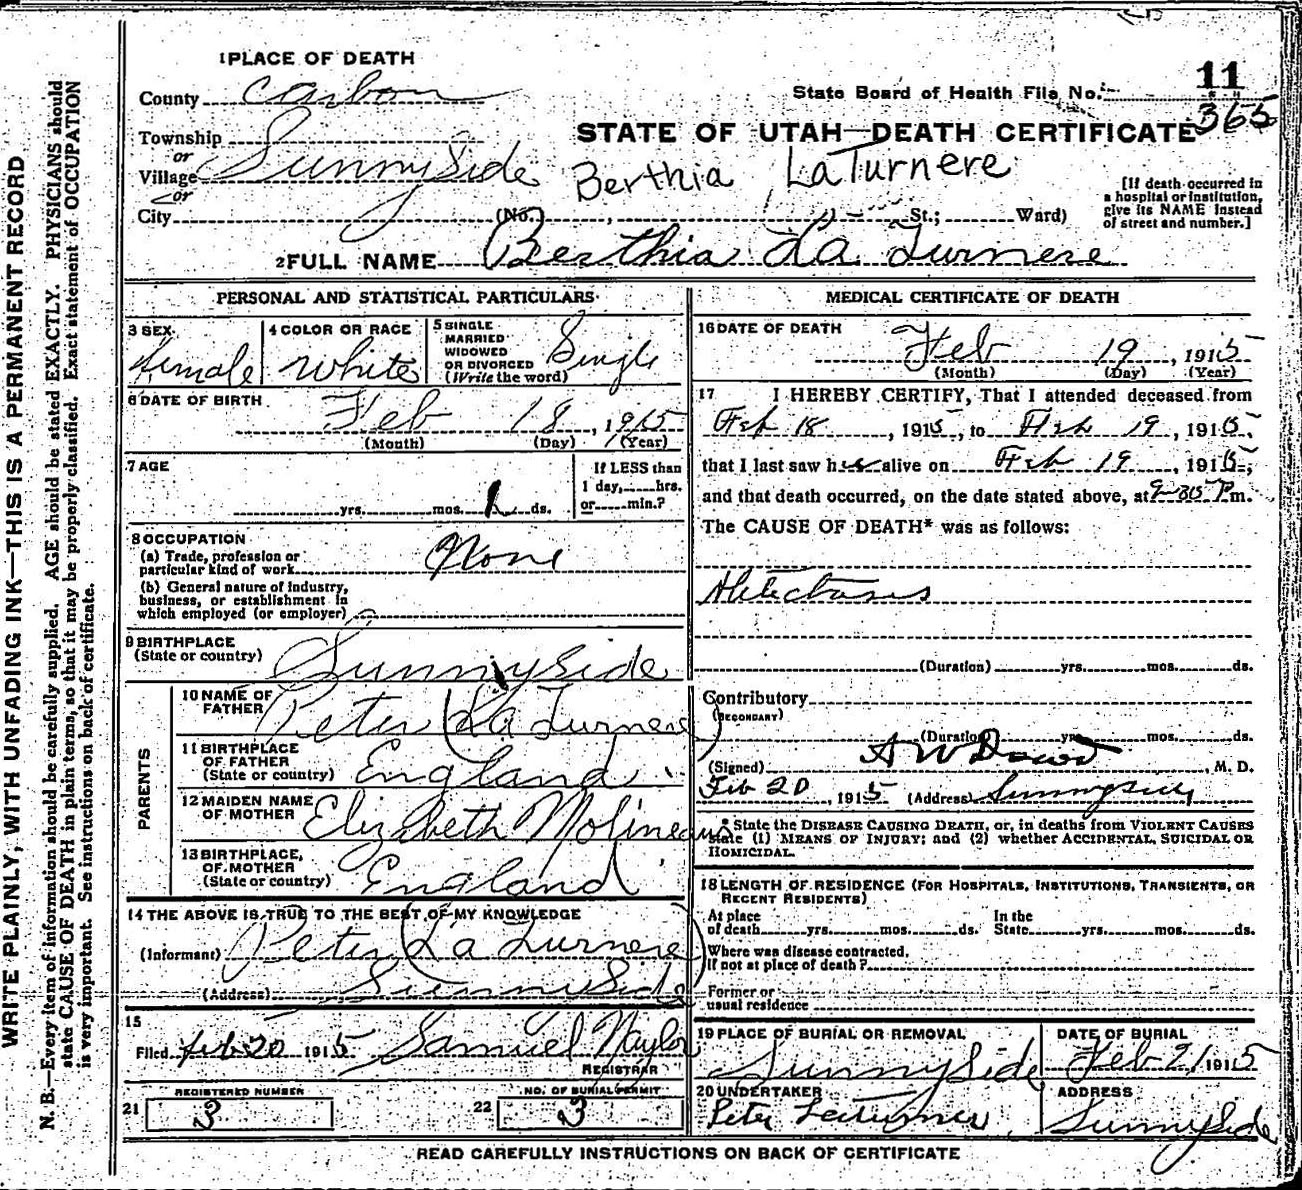 WRITE PLAINLY, WITH UNFADING INK—THIS IS A PERMANENT RECORD
N. B.—Every item of information should be carefully supplied. AGE should be stated EXACTLY. PHYSICIANS should
state CAUSE OF DEATH in plain terms, so that it may be properly classified. Exact statement of OCCUPATION
is very important. See instructions on back of certificate.
1 PLACE OF DEATH
County Carbon
State Board of Health File No. 11
365
Township
or
Village Sunnyside
or
City (No. , St.; Ward)
STATE OF UTAH—DEATH CERTIFICATE
Berthia LaTurnere
[If death occurred in
a hospital or institution,
give its NAME instead
of street and number.]
2 FULL NAME Berthia La Turnere
PERSONAL AND STATISTICAL PARTICULARS
3 SEX Female
4 COLOR OR RACE White
5 SINGLE
MARRIED
WIDOWED
OR DIVORCED
(Write the word) Single
6 DATE OF BIRTH
Feb 18, 1915
(Month) (Day) (Year)
7 AGE
yrs. mos. 1 ds.
If LESS than
1 day, hrs.
or min.?
8 OCCUPATION
(a) Trade, profession or
particular kind of work None
(b) General nature of industry,
business, or establishment in
which employed (or employer)
9 BIRTHPLACE
(State or country) Sunnyside
PARENTS
10 NAME OF
FATHER Peter (La Turnere)
11 BIRTHPLACE
OF FATHER
(State or country) England
12 MAIDEN NAME
OF MOTHER Elizabeth Molineaux
13 BIRTHPLACE,
OF MOTHER
(State or country) England
14 THE ABOVE IS TRUE TO THE BEST OF MY KNOWLEDGE
(Informant) Peter (La Turnere)
(Address) Sunnyside
15
Filed Feb 20 1915 Samuel Naylor
REGISTRAR
REGISTERED NUMBER
21 3
NO. OF BURIAL PERMIT
22 3
MEDICAL CERTIFICATE OF DEATH
16 DATE OF DEATH
Feb 19, 1915
(Month) (Day) (Year)
17 I HEREBY CERTIFY, That I attended deceased from
Feb 18, 1915, to Feb 19, 1915,
that I last saw her alive on Feb 19, 1915,
and that death occurred, on the date stated above, at P m.
The CAUSE OF DEATH* was as follows:
Atelectasis
(Duration) yrs. mos. ds.
Contributory
(SECONDARY)
(Duration) yrs. mos. ds.
(Signed) A W Dowd M. D.
Feb 20, 1915 (Address) Sunnyside
* State the DISEASE CAUSING DEATH, or, in deaths from VIOLENT CAUSES
state (1) MEANS OF INJURY; and (2) whether ACCIDENTAL, SUICIDAL OR
HOMICIDAL.
18 LENGTH OF RESIDENCE (FOR HOSPITALS, INSTITUTIONS, TRANSIENTS, OR
RECENT RESIDENTS)
At place
of death yrs. mos. ds.
In the
State yrs. mos. ds.
Where was disease contracted,
If not at place of death?
Former or
usual residence
19 PLACE OF BURIAL OR REMOVAL
Sunnyside
DATE OF BURIAL
Feb 21 1915
20 UNDERTAKER
Peter Laturner
ADDRESS
Sunnyside
READ CAREFULLY INSTRUCTIONS ON BACK OF CERTIFICATE